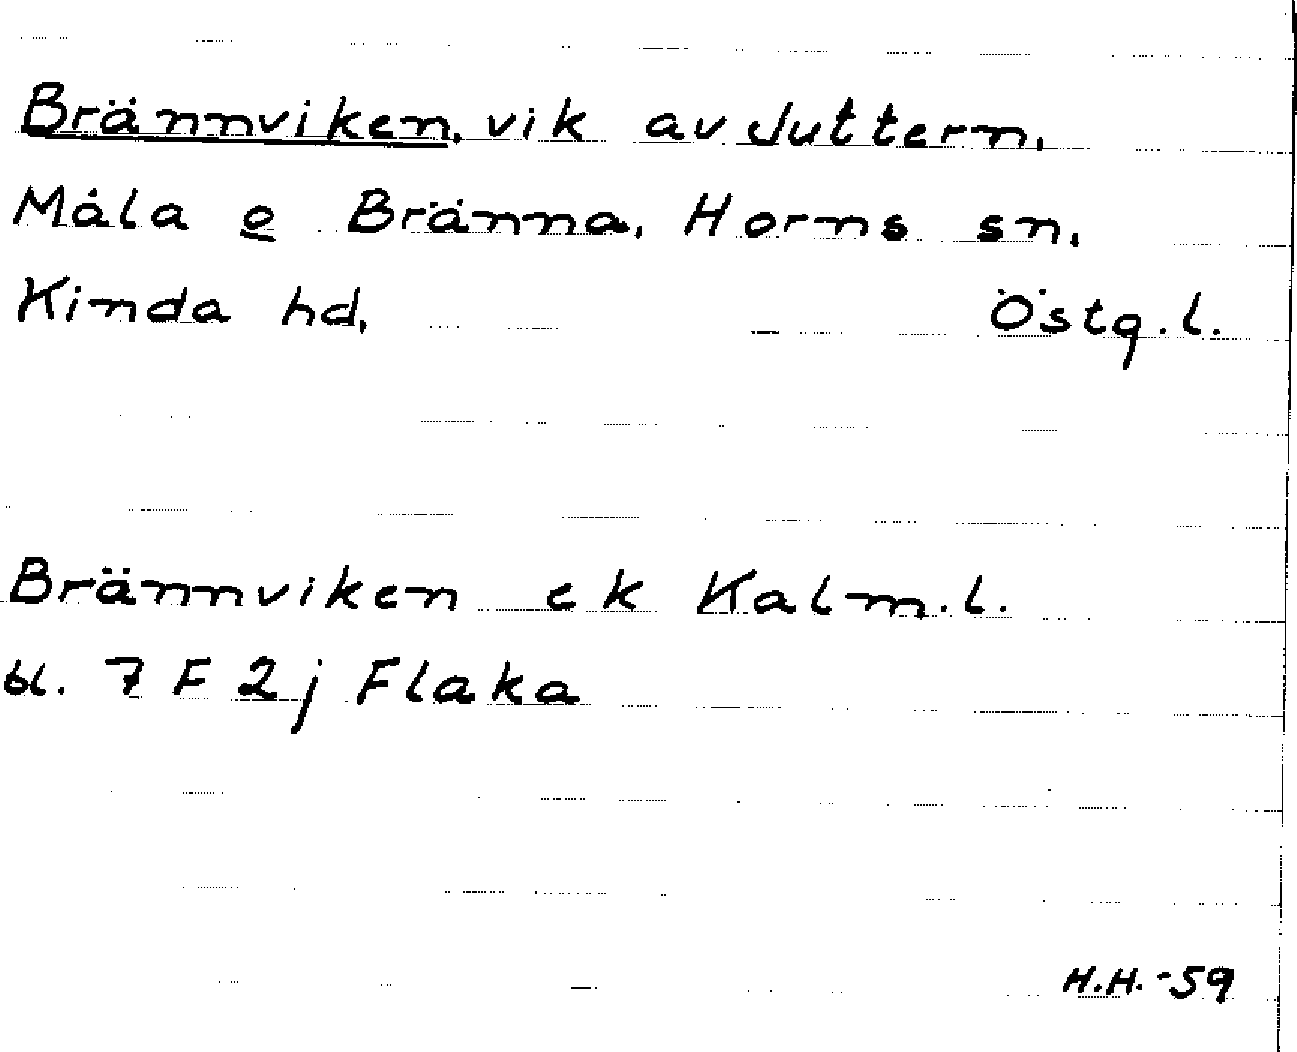 Brännviken, vik av Juttern,
Måla o Bränna, Horns sn,
Kinda hd, Östg.l.
Brännviken ek Kalm.l.
bl. 7 F 2j Flaka
H.H. -59